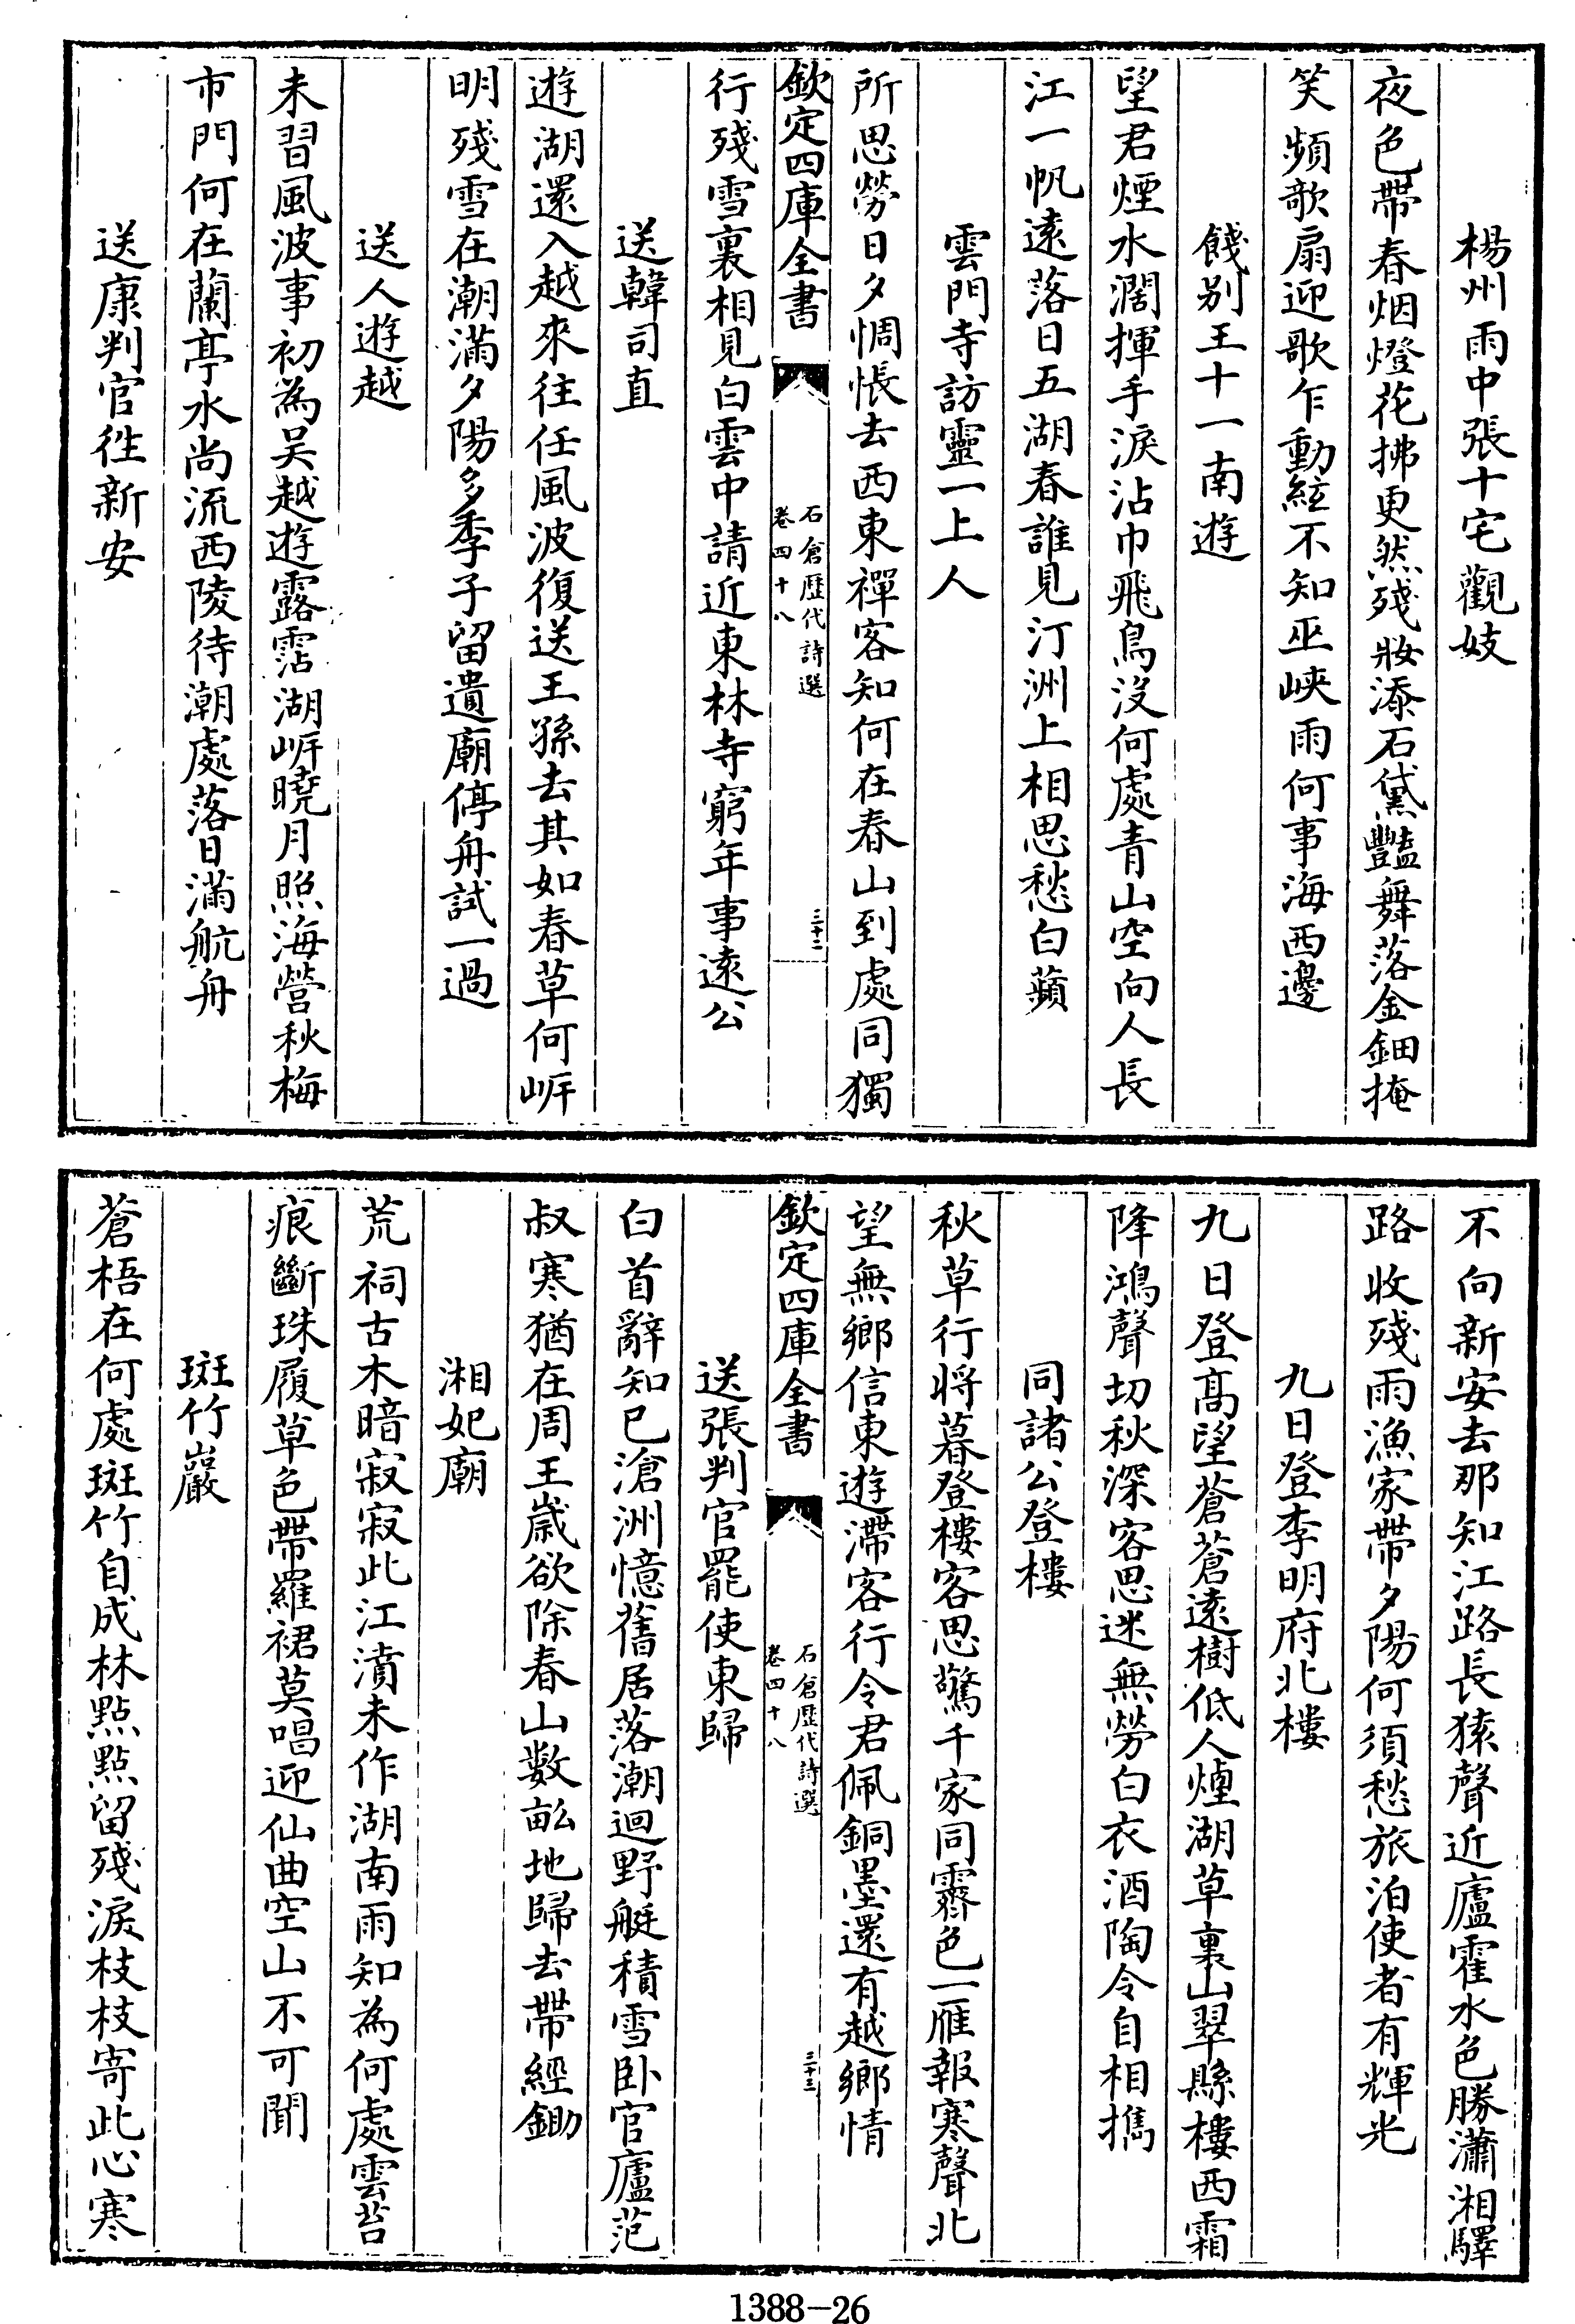 楊州雨中張十宅觀妓
夜色帶春烟燈花拂更然殘妝添石黛豔舞落金鈿掩
笑頻歌扇迎歌乍動絃不知巫峽雨何事海西邊
餞别王十一南遊
望君煙水濶揮手淚沾巾飛鳥没何處青山空向人長
江一帆逺落日五湖春誰見汀洲上相思愁白蘋
雲門寺訪靈一上人
所思勞日夕惆悵去西東禪客知何在春山到處同獨
欽定四庫全書
石倉歷代詩選
卷四十八
三十二
行殘雪裏相見白雲中請近東林寺窮年事逺公
送韓司直
遊湖還入越來往任風波復送王孫去其如春草何岍
明殘雪在潮滿夕陽多季子留遺廟停舟試一過
送人遊越
未習風波事初為吴越遊露霑湖岍曉月照海營秋梅
市門何在蘭亭水尚流西陵待潮處落日滿航舟
送康判官徃新安
不向新安去那知江路長猿聲近廬霍水色勝瀟湘驛
路收殘雨漁家帶夕陽何須愁旅泊使者有輝光
九日登李明府北樓
九日登髙望蒼蒼逺樹低人煙湖草裏山翠縣樓西霜
降鴻聲切秋深客思迷無勞白衣酒陶令自相擕
同諸公登樓
秋草行將暮登樓客思驚千家同霽色一雁報寒聲北
望無鄉信東遊滯客行令君佩銅墨還有越鄉情
欽定四庫全書
石倉歷代詩選
卷四十八
三十三
送張判官罷使東歸
白首辭知已滄洲憶舊居落潮迴野艇積雪卧官廬范
叔寒猶在周王嵗欲除春山數畝地歸去帶經鋤
湘妃廟
荒祠古木暗寂寂此江濆未作湖南雨知為何處雲苔
痕斷珠履草色帶羅裙莫唱迎仙曲空山不可聞
斑竹巖
蒼梧在何處斑竹自成林點點留殘淚枝枝寄此心寒
1388-26